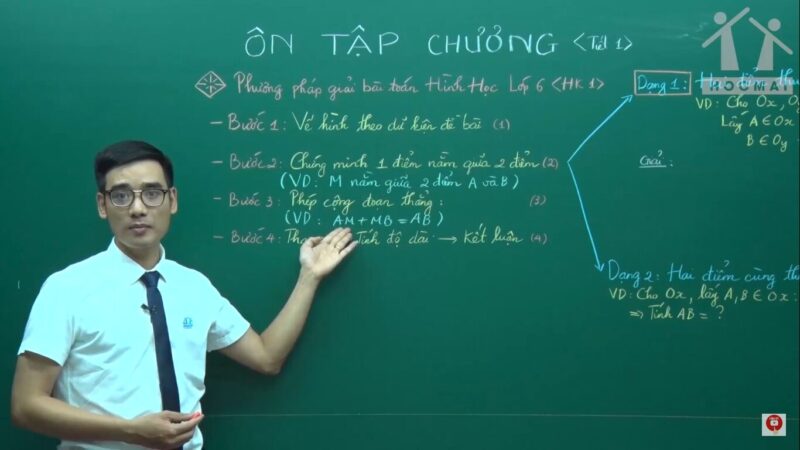 ÔN TẬP CHƯƠNG <Tiết 1>
Phương pháp giải bài toán Hình Học Lớp 6 <HK1>
- Bước 1: Vẽ hình theo dữ kiện đề bài (1)
- Bước 2: Chứng minh 1 điểm nằm giữa 2 điểm (2)
(VD: M nằm giữa 2 điểm A và B)
- Bước 3: Phép cộng đoạn thẳng: (3)
(VD: AM + MB = AB)
- Bước 4: Tính độ dài → Kết luận (4)
Dạng 1: Hai điểm
VD: Cho Ox,
Lấy A ∈ Ox
B ∈ Oy
Giải:
Dạng 2: Hai điểm cùng
VD: Cho Ox, lấy A, B ∈ Ox
⇒ Tính AB = ?
HOCMAI